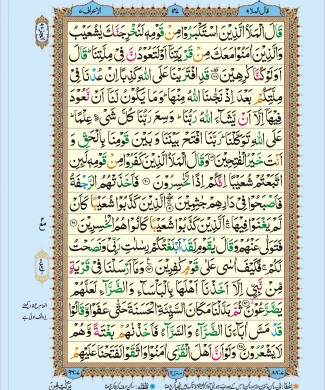 قال الملا ٩
الاعراف ٧
قَالَ الْمَلَاُ الَّذِیْنَ اسْتَكْبَرُوْا مِنْ قَوْمِهٖ لَنُخْرِجَنَّكَ یٰشُعَیْبُ
وَالَّذِیْنَ اٰمَنُوْا مَعَكَ مِنْ قَرْیَتِنَاۤ اَوْ لَتَعُوْدُنَّ فِیْ مِلَّتِنَا ؕ قَالَ
اَوَلَوْ كُنَّا كٰرِهِیْنَ ۟ قَدِ افْتَرَیْنَا عَلَی اللّٰهِ كَذِبًا اِنْ عُدْنَا فِیْ
مِلَّتِكُمْ بَعْدَ اِذْ نَجّٰىنَا اللّٰهُ مِنْهَا ؕ وَمَا یَكُوْنُ لَنَاۤ اَنْ نَّعُوْدَ
فِیْهَاۤ اِلَّاۤ اَنْ یَّشَآءَ اللّٰهُ رَبُّنَا ؕ وَسِعَ رَبُّنَا كُلَّ شَیْءٍ عِلْمًا ؕ
عَلَی اللّٰهِ تَوَكَّلْنَا ؕ رَبَّنَا افْتَحْ بَیْنَنَا وَبَیْنَ قَوْمِنَا بِالْحَقِّ وَ
اَنْتَ خَیْرُ الْفٰتِحِیْنَ ۟ وَقَالَ الْمَلَاُ الَّذِیْنَ كَفَرُوْا مِنْ قَوْمِهٖ لَىِٕنِ
اتَّبَعْتُمْ شُعَیْبًا اِنَّكُمْ اِذًا لَّخٰسِرُوْنَ ۟ فَاَخَذَتْهُمُ الرَّجْفَةُ
فَاَصْبَحُوْا فِیْ دَارِهِمْ جٰثِمِیْنَ ۟ الَّذِیْنَ كَذَّبُوْا شُعَیْبًا كَاَنْ
لَّمْ یَغْنَوْا فِیْهَا ۛۚ اَلَّذِیْنَ كَذَّبُوْا شُعَیْبًا كَانُوْا هُمُ الْخٰسِرِیْنَ ۟
فَتَوَلّٰی عَنْهُمْ وَقَالَ یٰقَوْمِ لَقَدْ اَبْلَغْتُكُمْ رِسٰلٰتِ رَبِّیْ وَنَصَحْتُ
لَكُمْ ۚ فَكَیْفَ اٰسٰی عَلٰی قَوْمٍ كٰفِرِیْنَ ۟ وَمَاۤ اَرْسَلْنَا فِیْ قَرْیَةٍ
مِّنْ نَّبِیٍّ اِلَّاۤ اَخَذْنَاۤ اَهْلَهَا بِالْبَاْسَآءِ وَالضَّرَّآءِ لَعَلَّهُمْ
یَضَّرَّعُوْنَ ۟ ثُمَّ بَدَّلْنَا مَكَانَ السَّیِّئَةِ الْحَسَنَةَ حَتّٰی عَفَوْا وَّقَالُوْا
قَدْ مَسَّ اٰبَآءَنَا الضَّرَّآءُ وَالسَّرَّآءُ فَاَخَذْنٰهُمْ بَغْتَةً وَّهُمْ
لَا یَشْعُرُوْنَ ۟ وَلَوْ اَنَّ اَهْلَ الْقُرٰۤی اٰمَنُوْا وَاتَّقَوْا لَفَتَحْنَا عَلَیْهِمْ